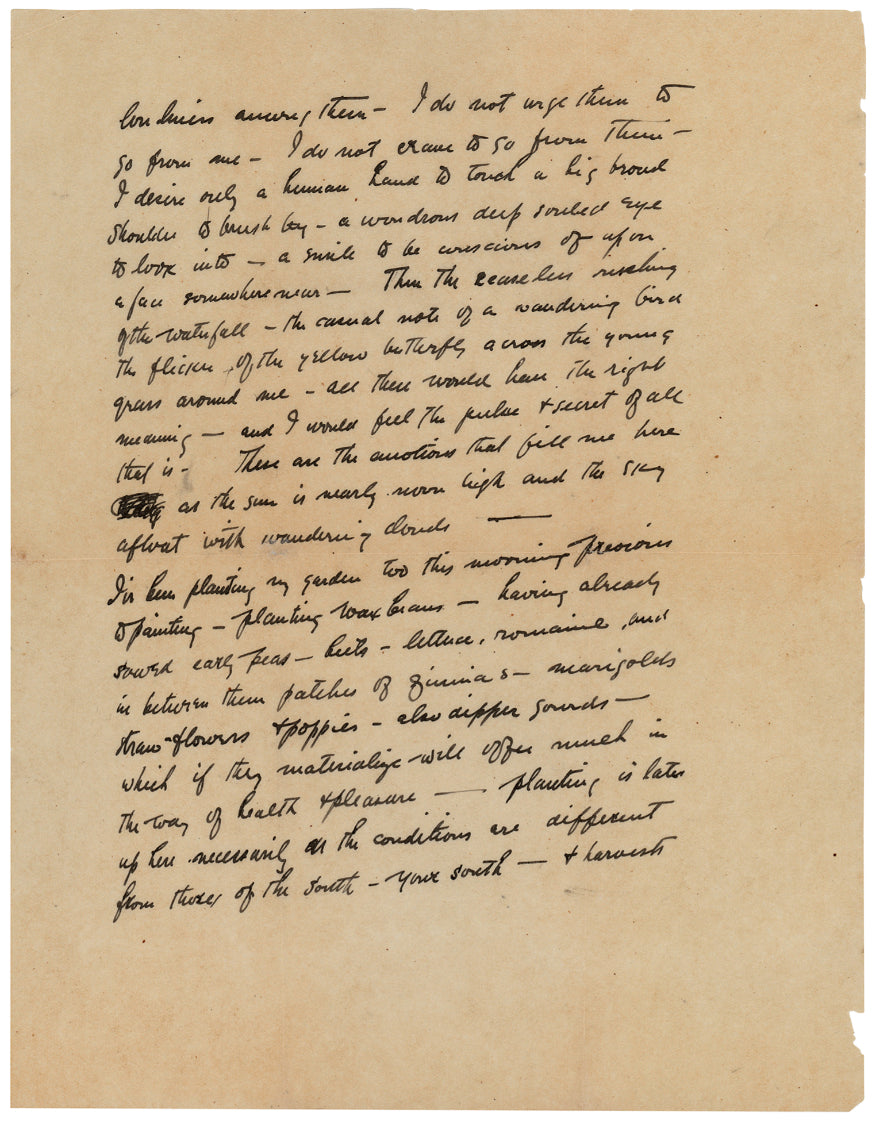 loneliness among them – I do not urge them to
go from me – I do not crave to go from them –
I desire only a human hand to touch a big broad
shoulder to brush by – a wondrous deep souled eye
to look into – a smile to be conscious of upon
a face somewhere near – Then the ceaseless rushing
of the waterfall – the casual note of a wandering bird
the flicker of the yellow butterfly across the young
grass around me – all these would have the right
meaning – and I would feel the pulse & secret of all
that is – These are the emotions that fill me here
as the sun is nearly noon high and the sky
afloat with wandering clouds —
I've been planting my garden too this morning previous
to painting – planting wax beans – having already
sowed early peas – beets – lettuce, romaine, and
in between them patches of zinnias – marigolds
straw-flowers & poppies – also dipper gourds –
which if they materialize will offer much in
the way of health & pleasure — planting is later
up here necessarily as the conditions are different
from those of the south – your south — & harvests